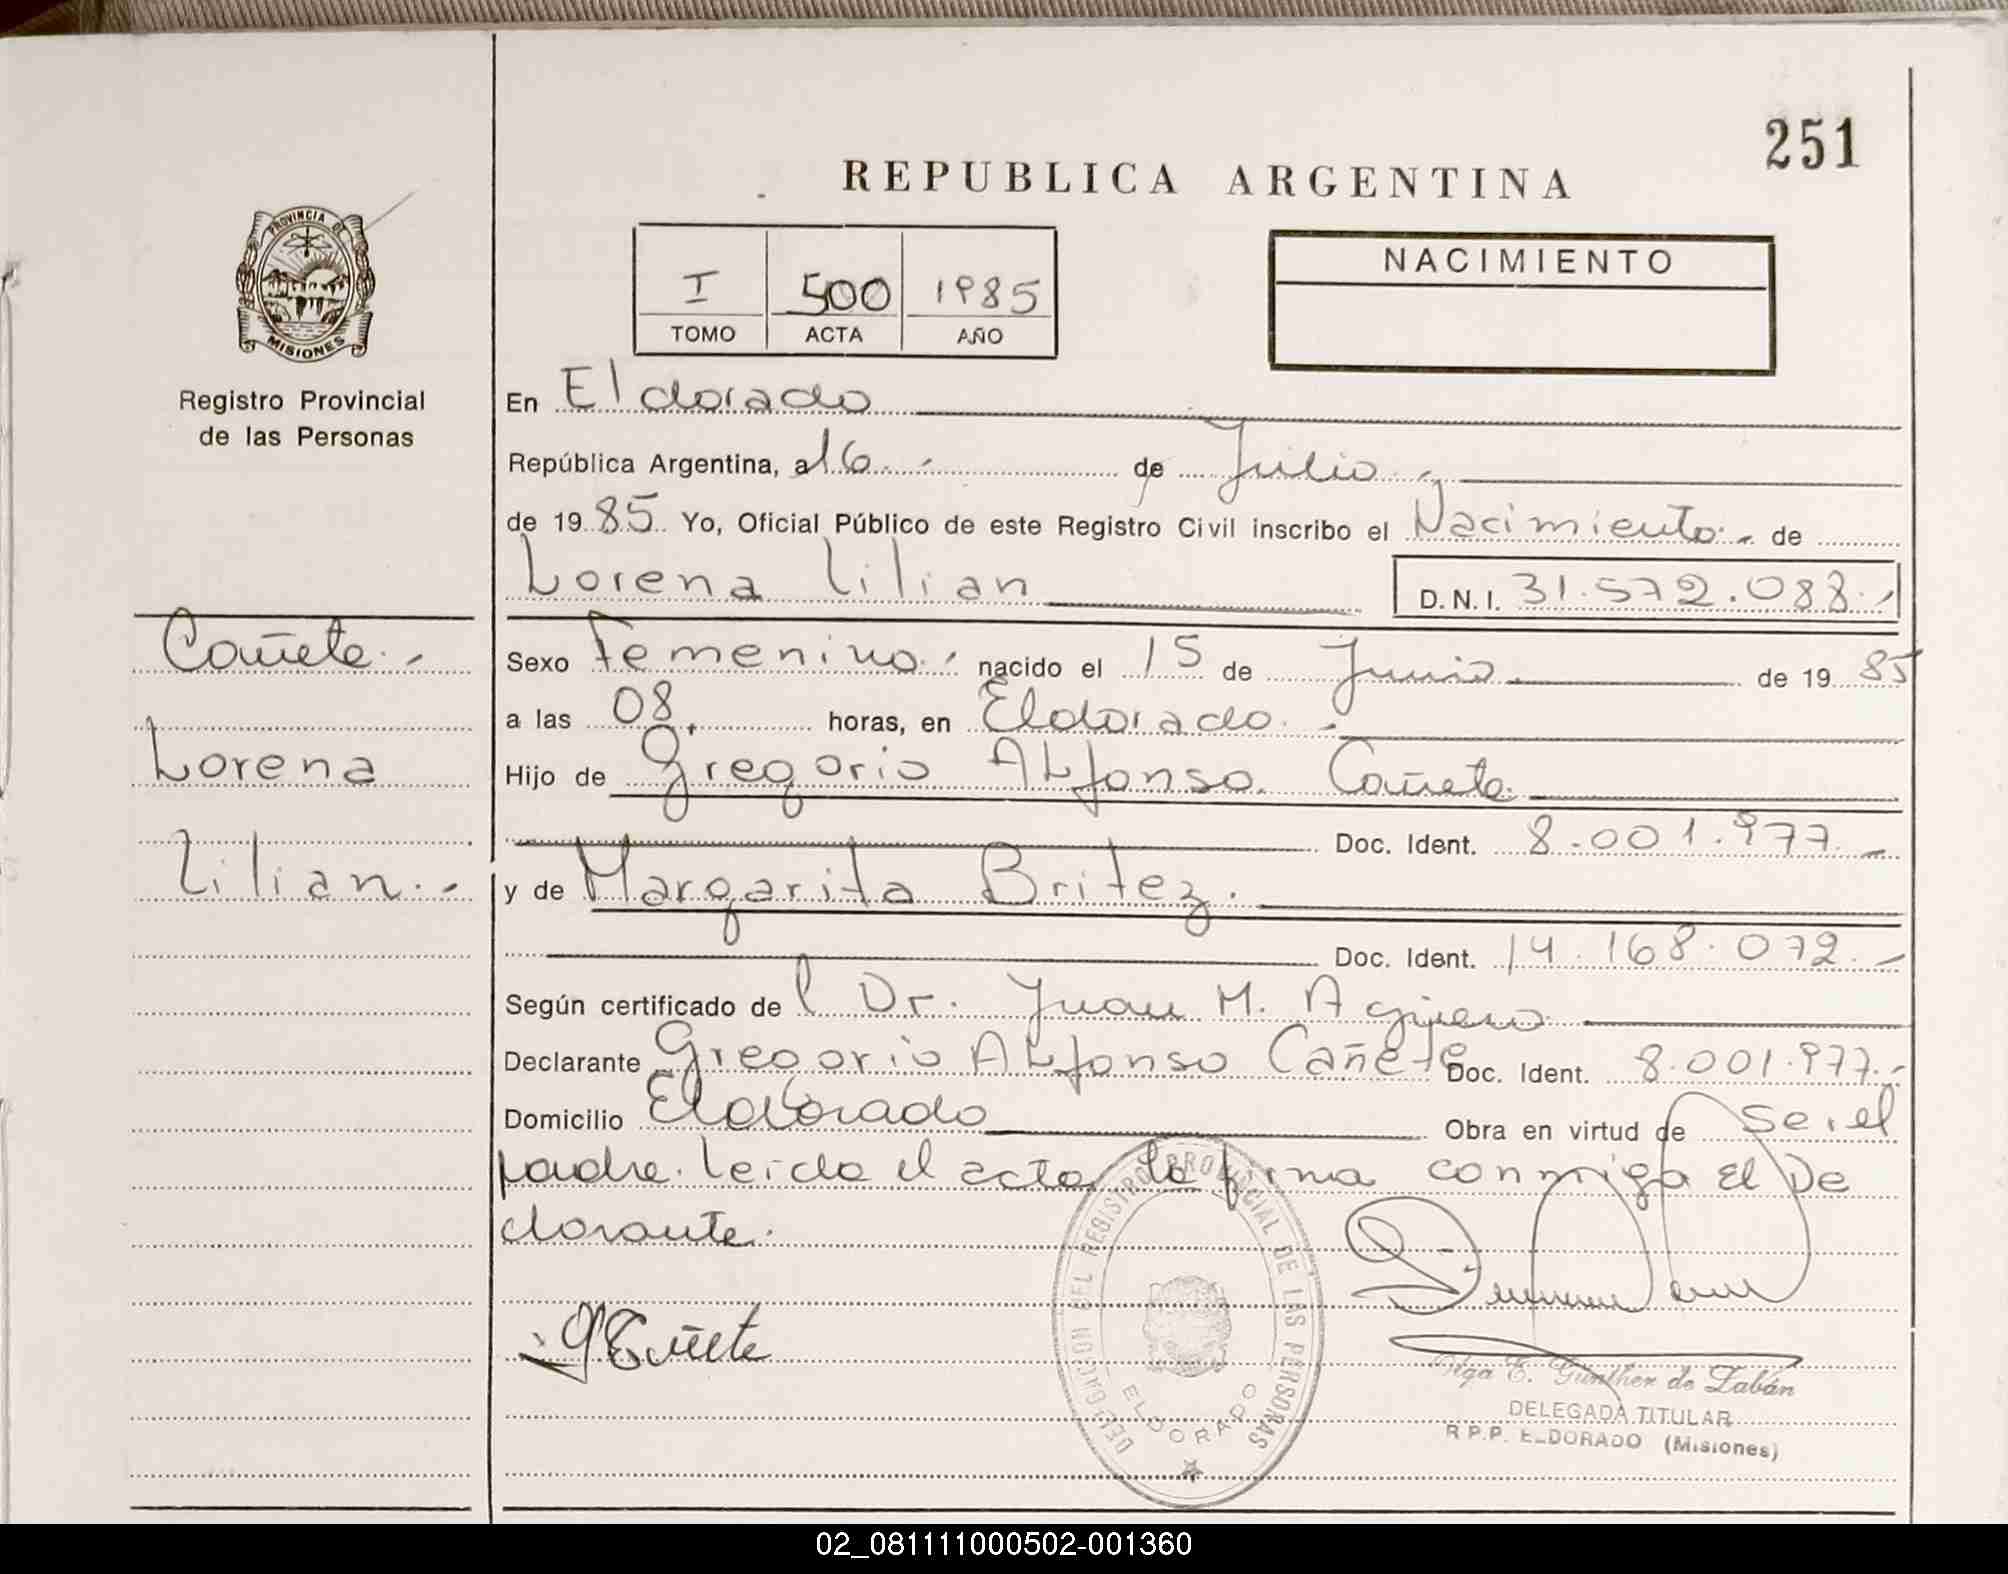 251
REPUBLICA ARGENTINA
PROVINCIA DE
MISIONES
Registro Provincial
de las Personas
I 500 1985
TOMO ACTA AÑO
NACIMIENTO
En Eldorado
República Argentina, a 16.- de Julio.-
de 1985 Yo, Oficial Público de este Registro Civil inscribo el Nacimiento.- de
Lorena Lilian D.N.I. 31.572.088.-
Cañete.-
Lorena
Lilian.-
Sexo Femenino.- nacido el 15 de Junio de 1985
a las 08. horas, en Eldorado.-
Hijo de Gregorio ALfonso Cañete
Doc. Ident. 8.001.977.-
y de Margarita Britez.
Doc. Ident. 14.168.072.-
Según certificado de l Dr. Juan M. Agüero
Declarante Gregorio ALfonso Cañete Doc. Ident. 8.001.977.-
Domicilio Eldorado Obra en virtud de ser el
padre. Leída el acta la firma conmigo El De
clarante.
DELEGACION DEL REGISTRO PROVINCIAL DE LAS PERSONAS
ELDORADO
G Cañete
Olga E. Günther de Zabán
DELEGADA TITULAR
R.P.P. ELDORADO (Misiones)
02_081111000502-001360